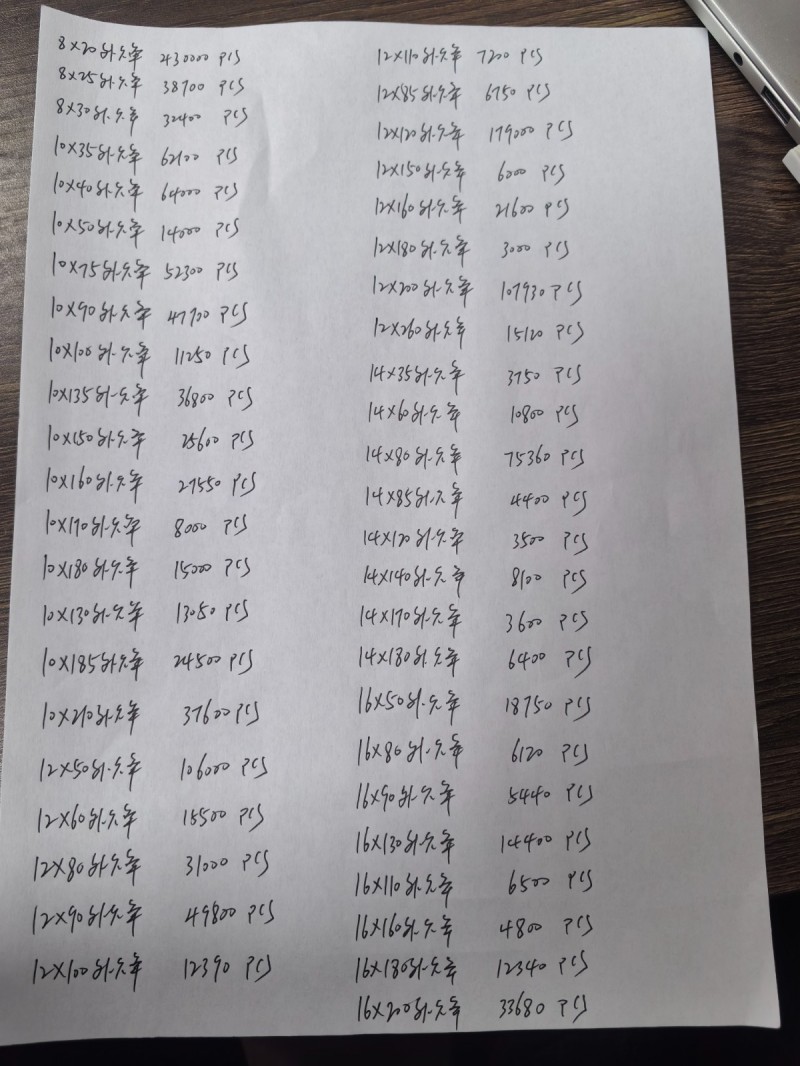 8×20外六角 430000 PCS
8×25外六角 38700 PCS
8×30外六角 32400 PCS
10×35外六角 62100 PCS
10×40外六角 64000 PCS
10×50外六角 14000 PCS
10×75外六角 52300 PCS
10×90外六角 47700 PCS
10×100外六角 11250 PCS
10×135外六角 36800 PCS
10×150外六角 25600 PCS
10×160外六角 27550 PCS
10×170外六角 8000 PCS
10×180外六角 15000 PCS
10×130外六角 13050 PCS
10×185外六角 24500 PCS
10×210外六角 37600 PCS
12×50外六角 106000 PCS
12×60外六角 15500 PCS
12×80外六角 31000 PCS
12×90外六角 49800 PCS
12×100外六角 12390 PCS
12×110外六角 7200 PCS
12×85外六角 6750 PCS
12×120外六角 179000 PCS
12×150外六角 6000 PCS
12×160外六角 21600 PCS
12×180外六角 3000 PCS
12×200外六角 107930 PCS
12×260外六角 15120 PCS
14×35外六角 3750 PCS
14×60外六角 10800 PCS
14×80外六角 75360 PCS
14×85外六角 4400 PCS
14×120外六角 3500 PCS
14×140外六角 8100 PCS
14×170外六角 3600 PCS
14×180外六角 6400 PCS
16×50外六角 18750 PCS
16×80外六角 6120 PCS
16×90外六角 5440 PCS
16×130外六角 14400 PCS
16×110外六角 6500 PCS
16×160外六角 4800 PCS
16×180外六角 12340 PCS
16×200外六角 33680 PCS